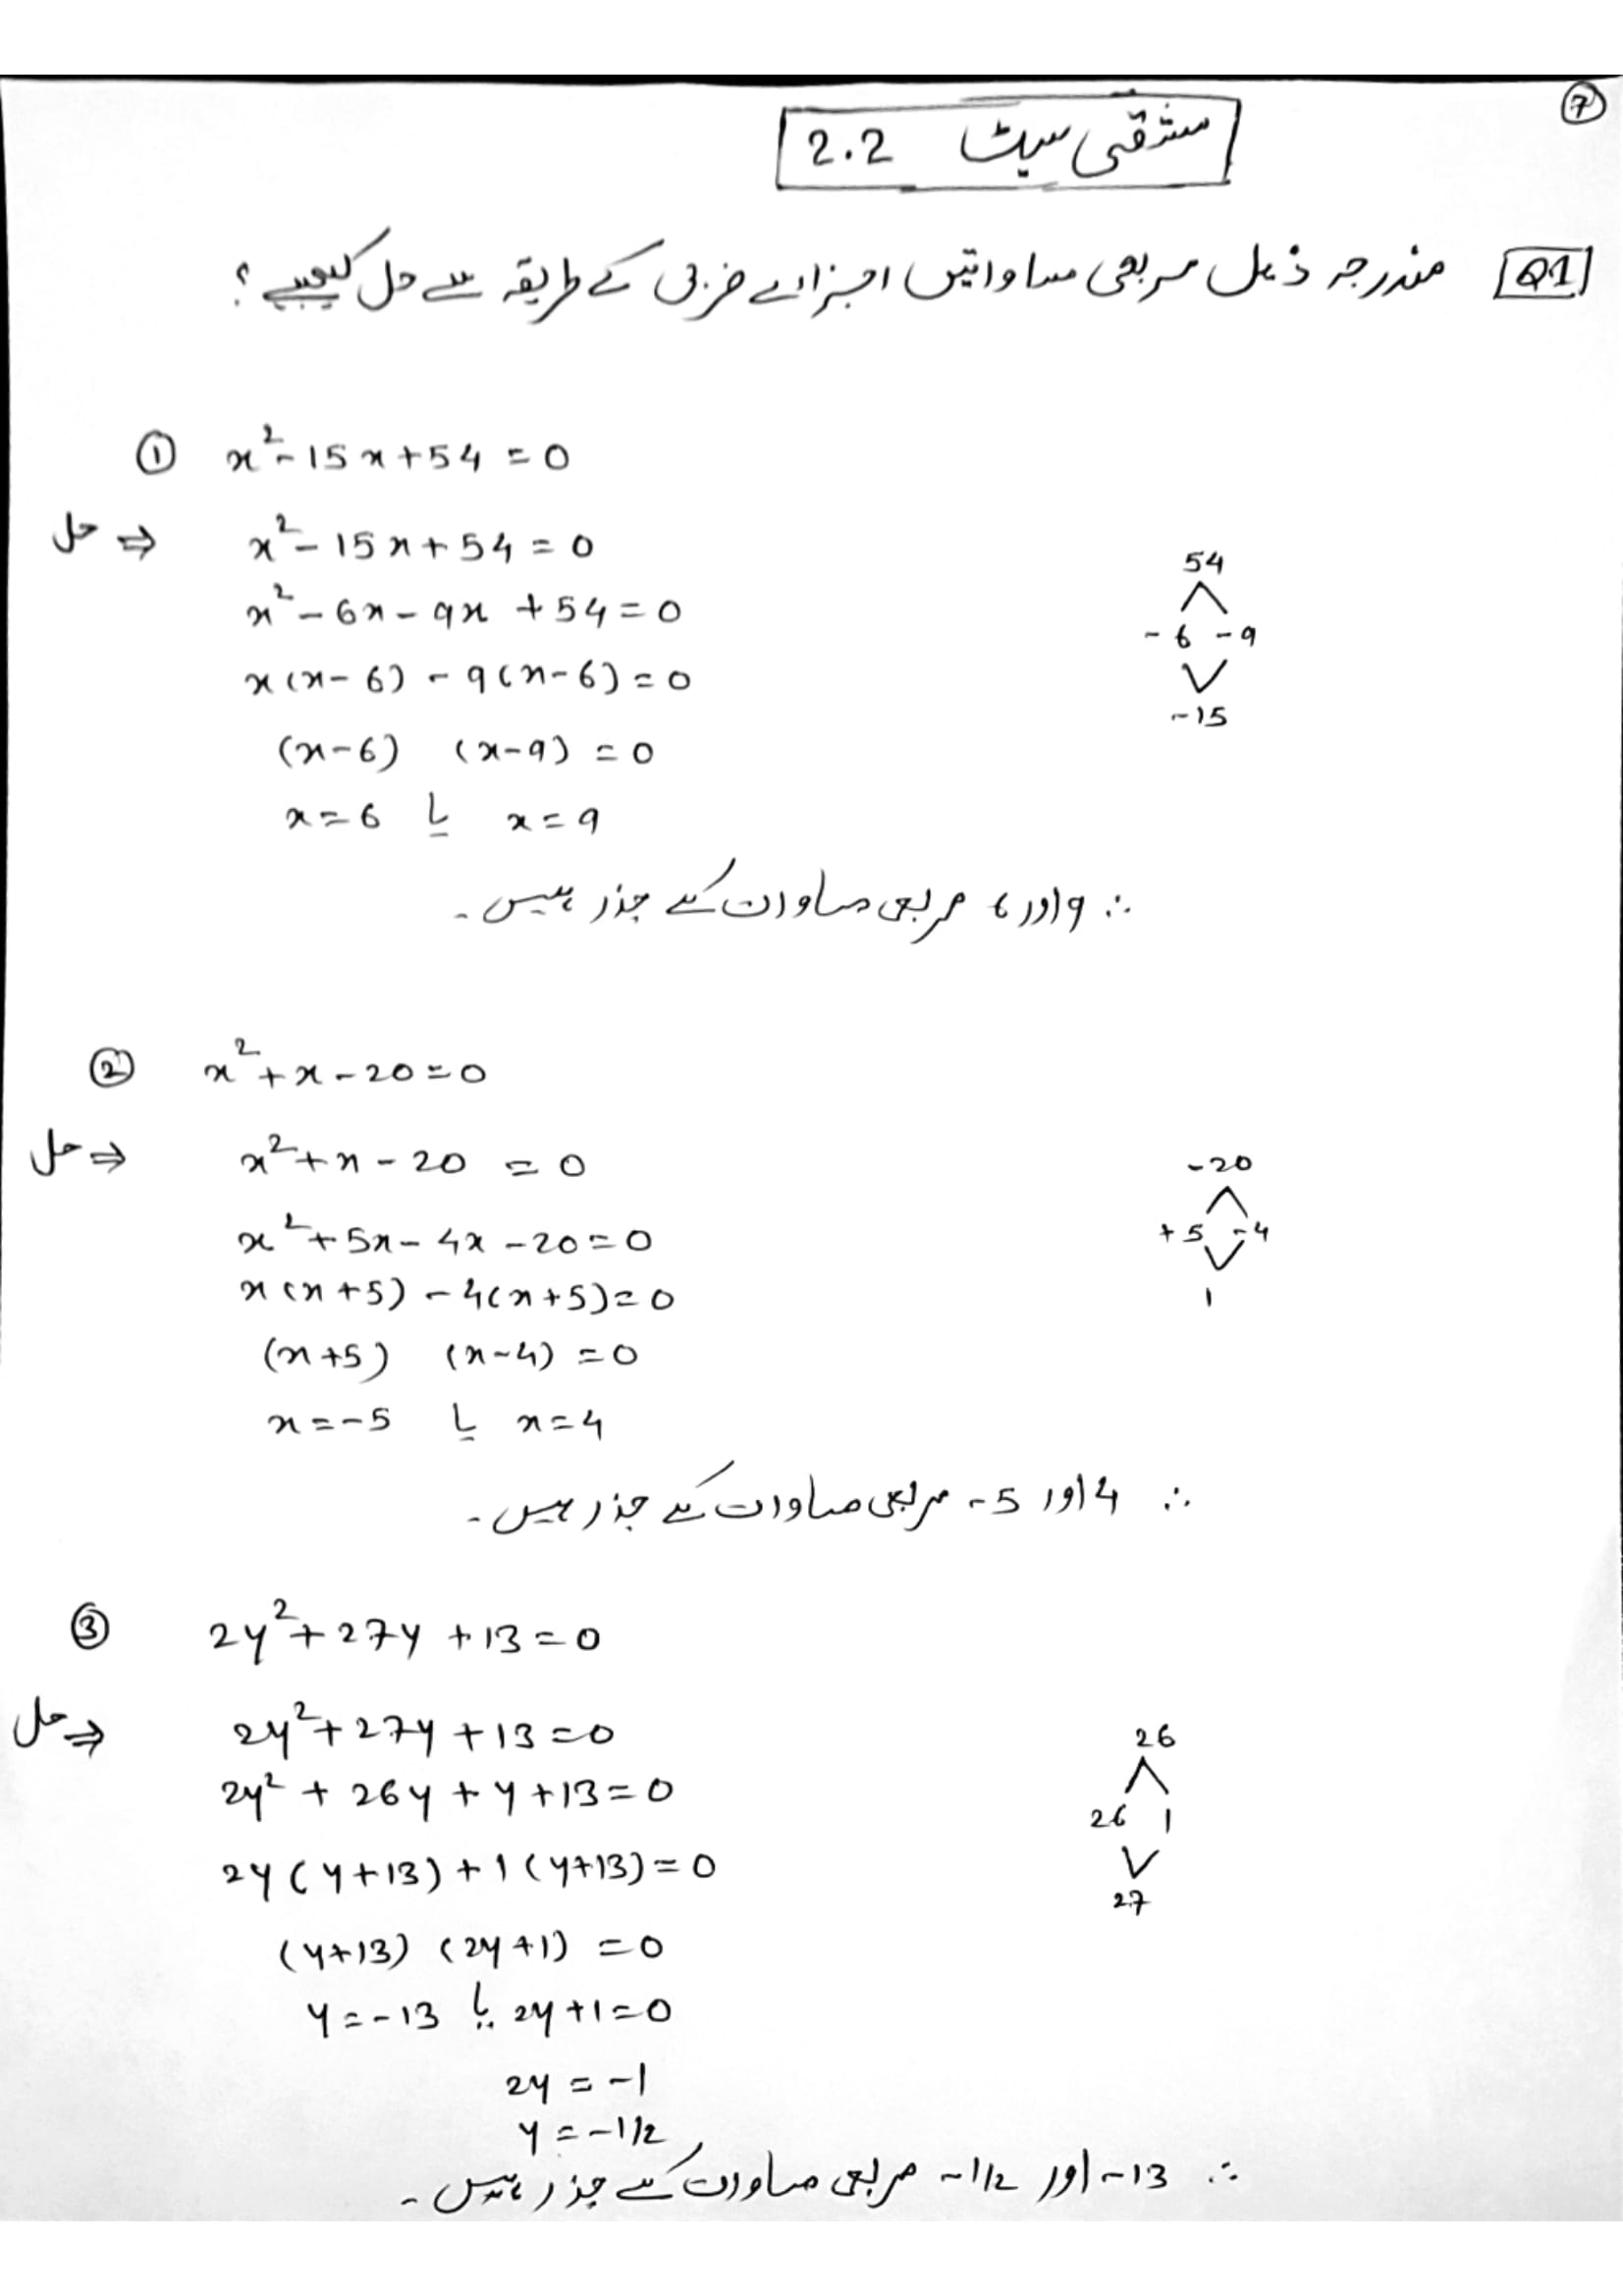 7
مشقی سیٹ 2.2
Q1 مندرجہ ذیل مربعی مساواتیں اجزائے ضربی کے طریقہ سے حل کیجیے؟
① x²-15x+54=0
حل ⇒ x²-15x+54=0
x²-6x-9x+54=0
x(x-6)-9(x-6)=0
(x-6) (x-9)=0
x=6 یا x=9
54
-6 -9
-15
∴ 9 اور 6 مربعی مساوات کے جذر ہیں۔
② x²+x-20=0
حل ⇒ x²+x-20=0
x²+5x-4x-20=0
x(x+5)-4(x+5)=0
(x+5) (x-4)=0
x=-5 یا x=4
-20
+5 -4
1
∴ 4 اور -5 مربعی مساوات کے جذر ہیں۔
③ 2y²+27y+13=0
حل ⇒ 2y²+27y+13=0
2y²+26y+y+13=0
2y(y+13)+1(y+13)=0
(y+13) (2y+1)=0
y=-13 یا 2y+1=0
2y=-1
y=-1/2
26
26 1
27
∴ -13 اور -1/2 مربعی مساوات کے جذر ہیں۔